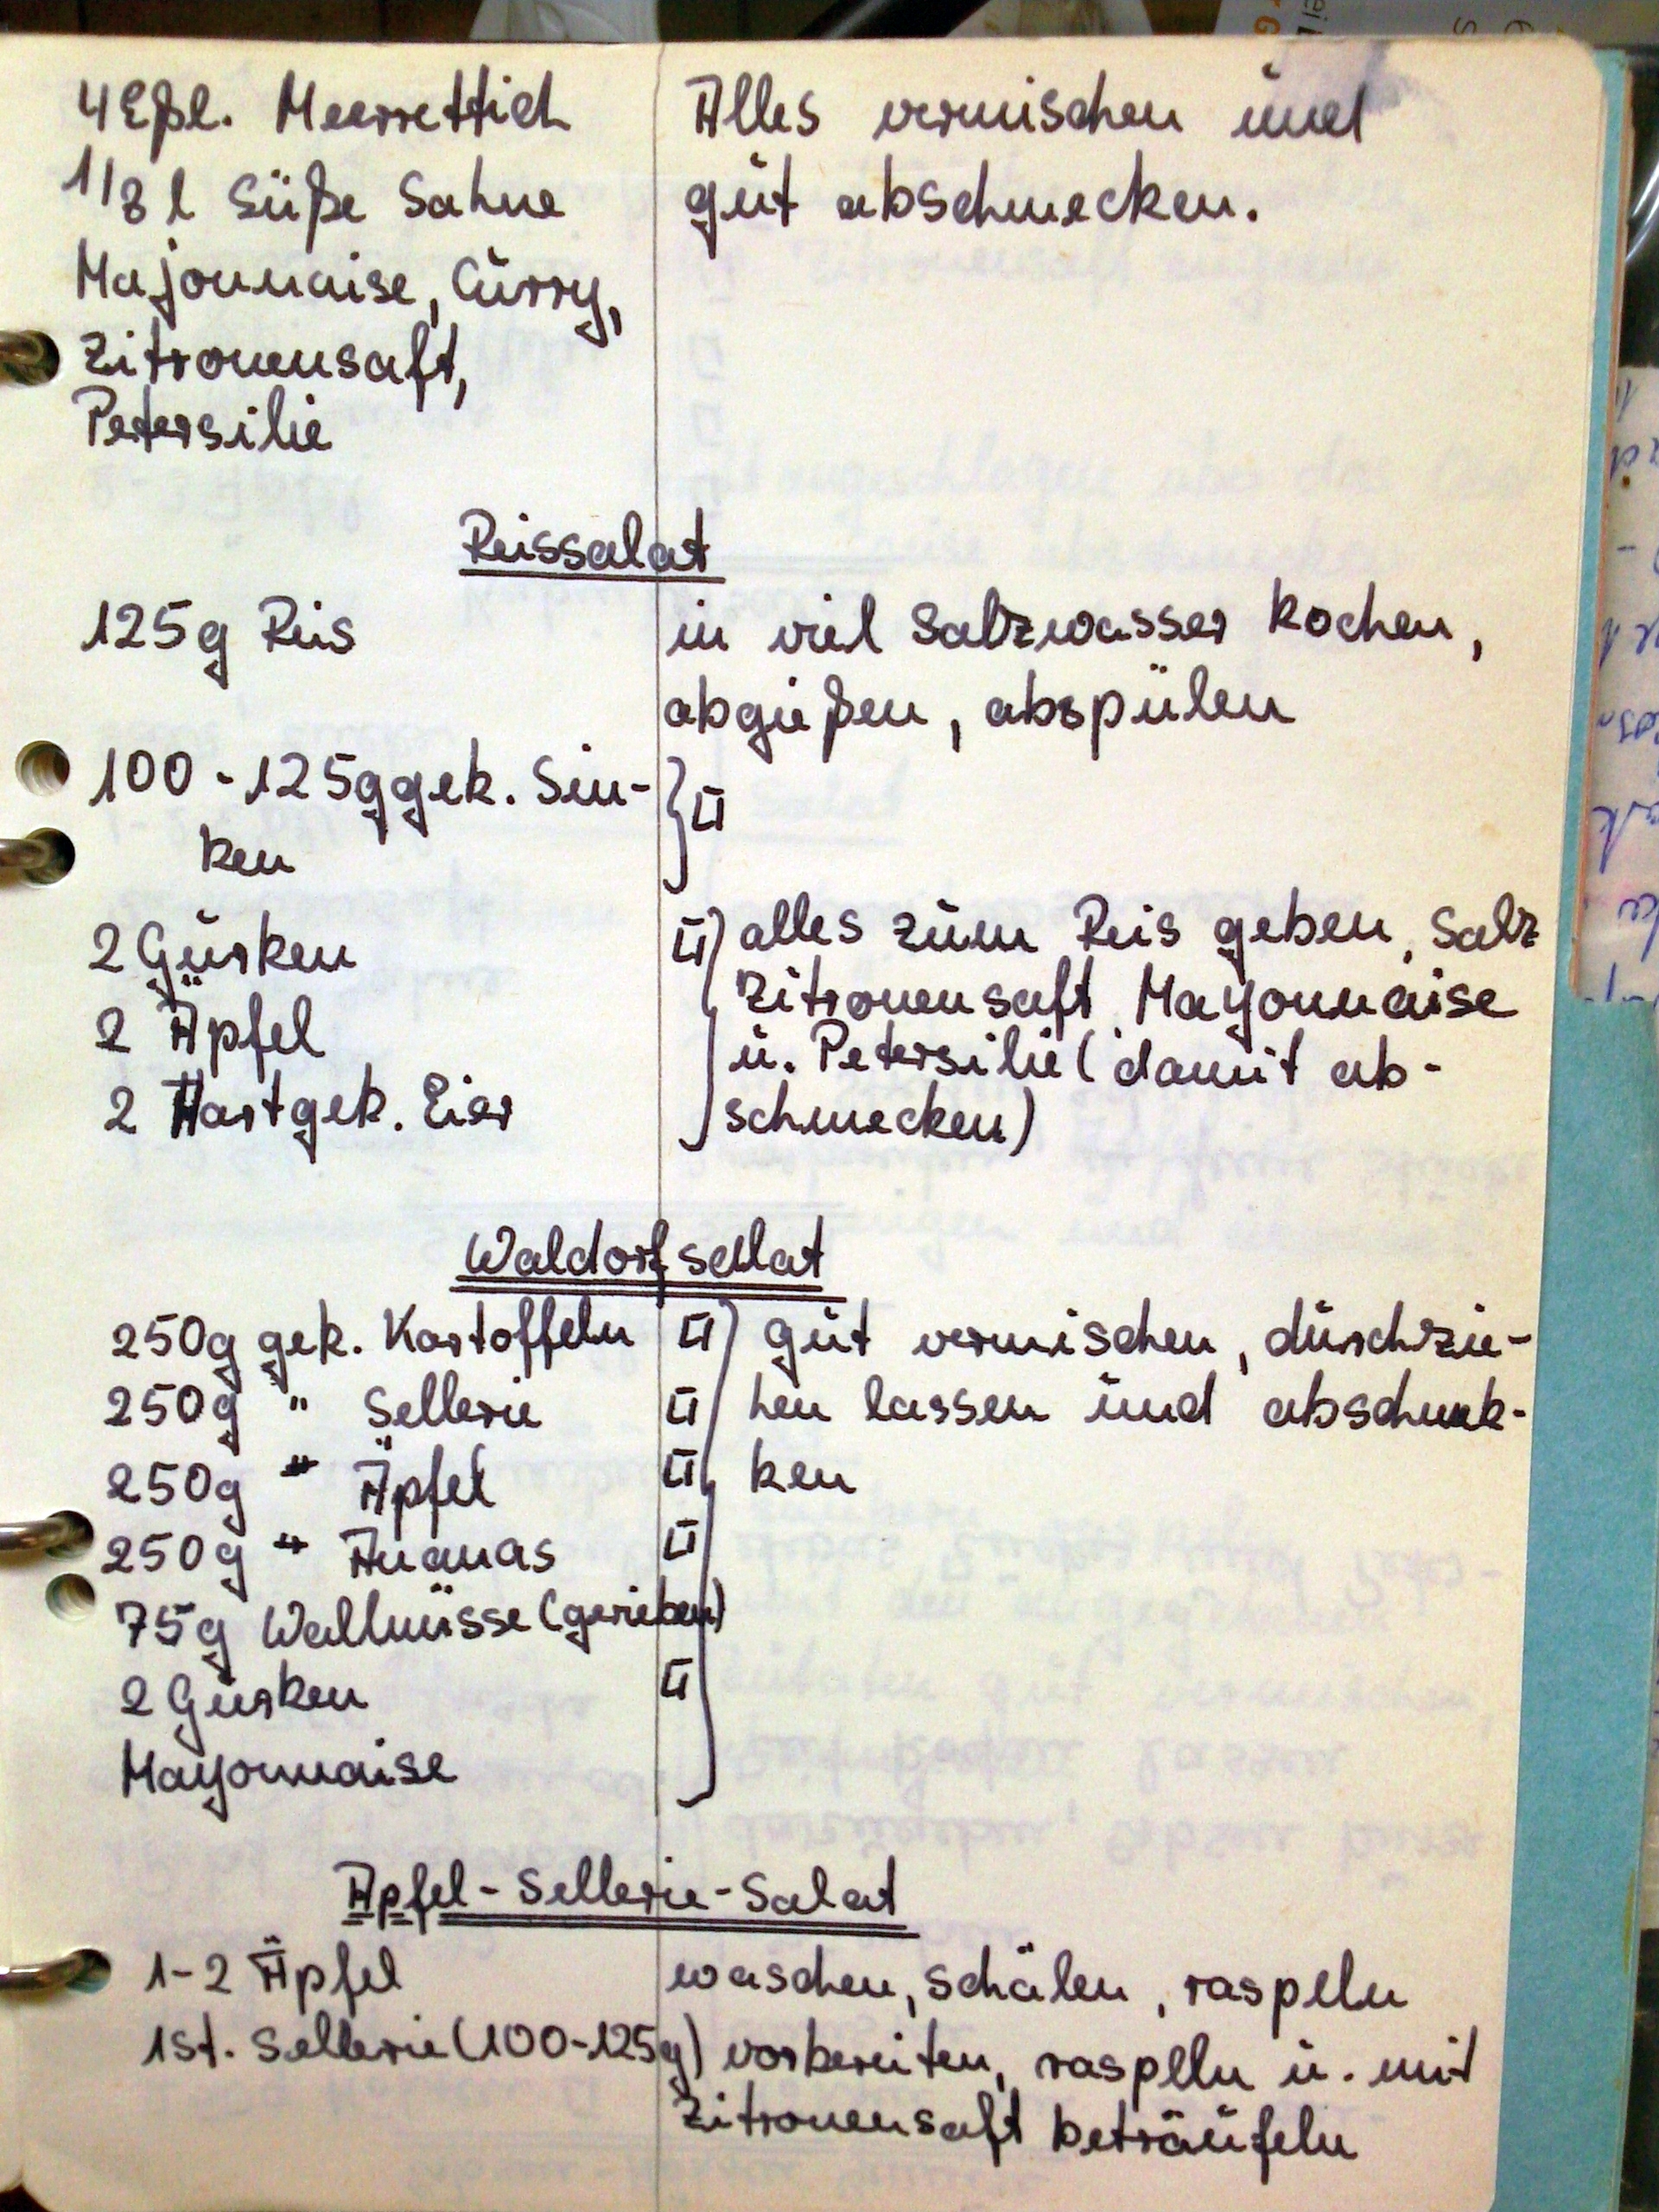 4 Eßl. Meerrettich
1/8 l Süße Sahne
Majonnaise, Curry,
Zitronensaft,
Petersilie
Alles vermischen und
gut abschmecken.
Reissalat
125g Reis
in viel Salzwasser kochen,
abgießen, abspülen
100 - 125g gek. Sin-
ken
2 Gurken
2 Äpfel
2 Hartgek. Eier
alles zum Reis geben, Salz
Zitronensaft Mayonnaise
u. Petersilie (damit ab-
schmecken)
Waldorfsallat
250g gek. Kartoffeln
250g " Sellerie
250g " Äpfel
250g " Ananas
75g Wallnüsse (gerieben)
2 Gurken
Mayonnaise
gut vermischen, durchzie-
hen lassen und abschmek-
ken
Apfel-Sellerie-Salat
1-2 Äpfel
waschen, schälen, raspeln
1 St. Sellerie (100-125g)
vorbereiten, raspeln u. mit
Zitronensaft beträufeln